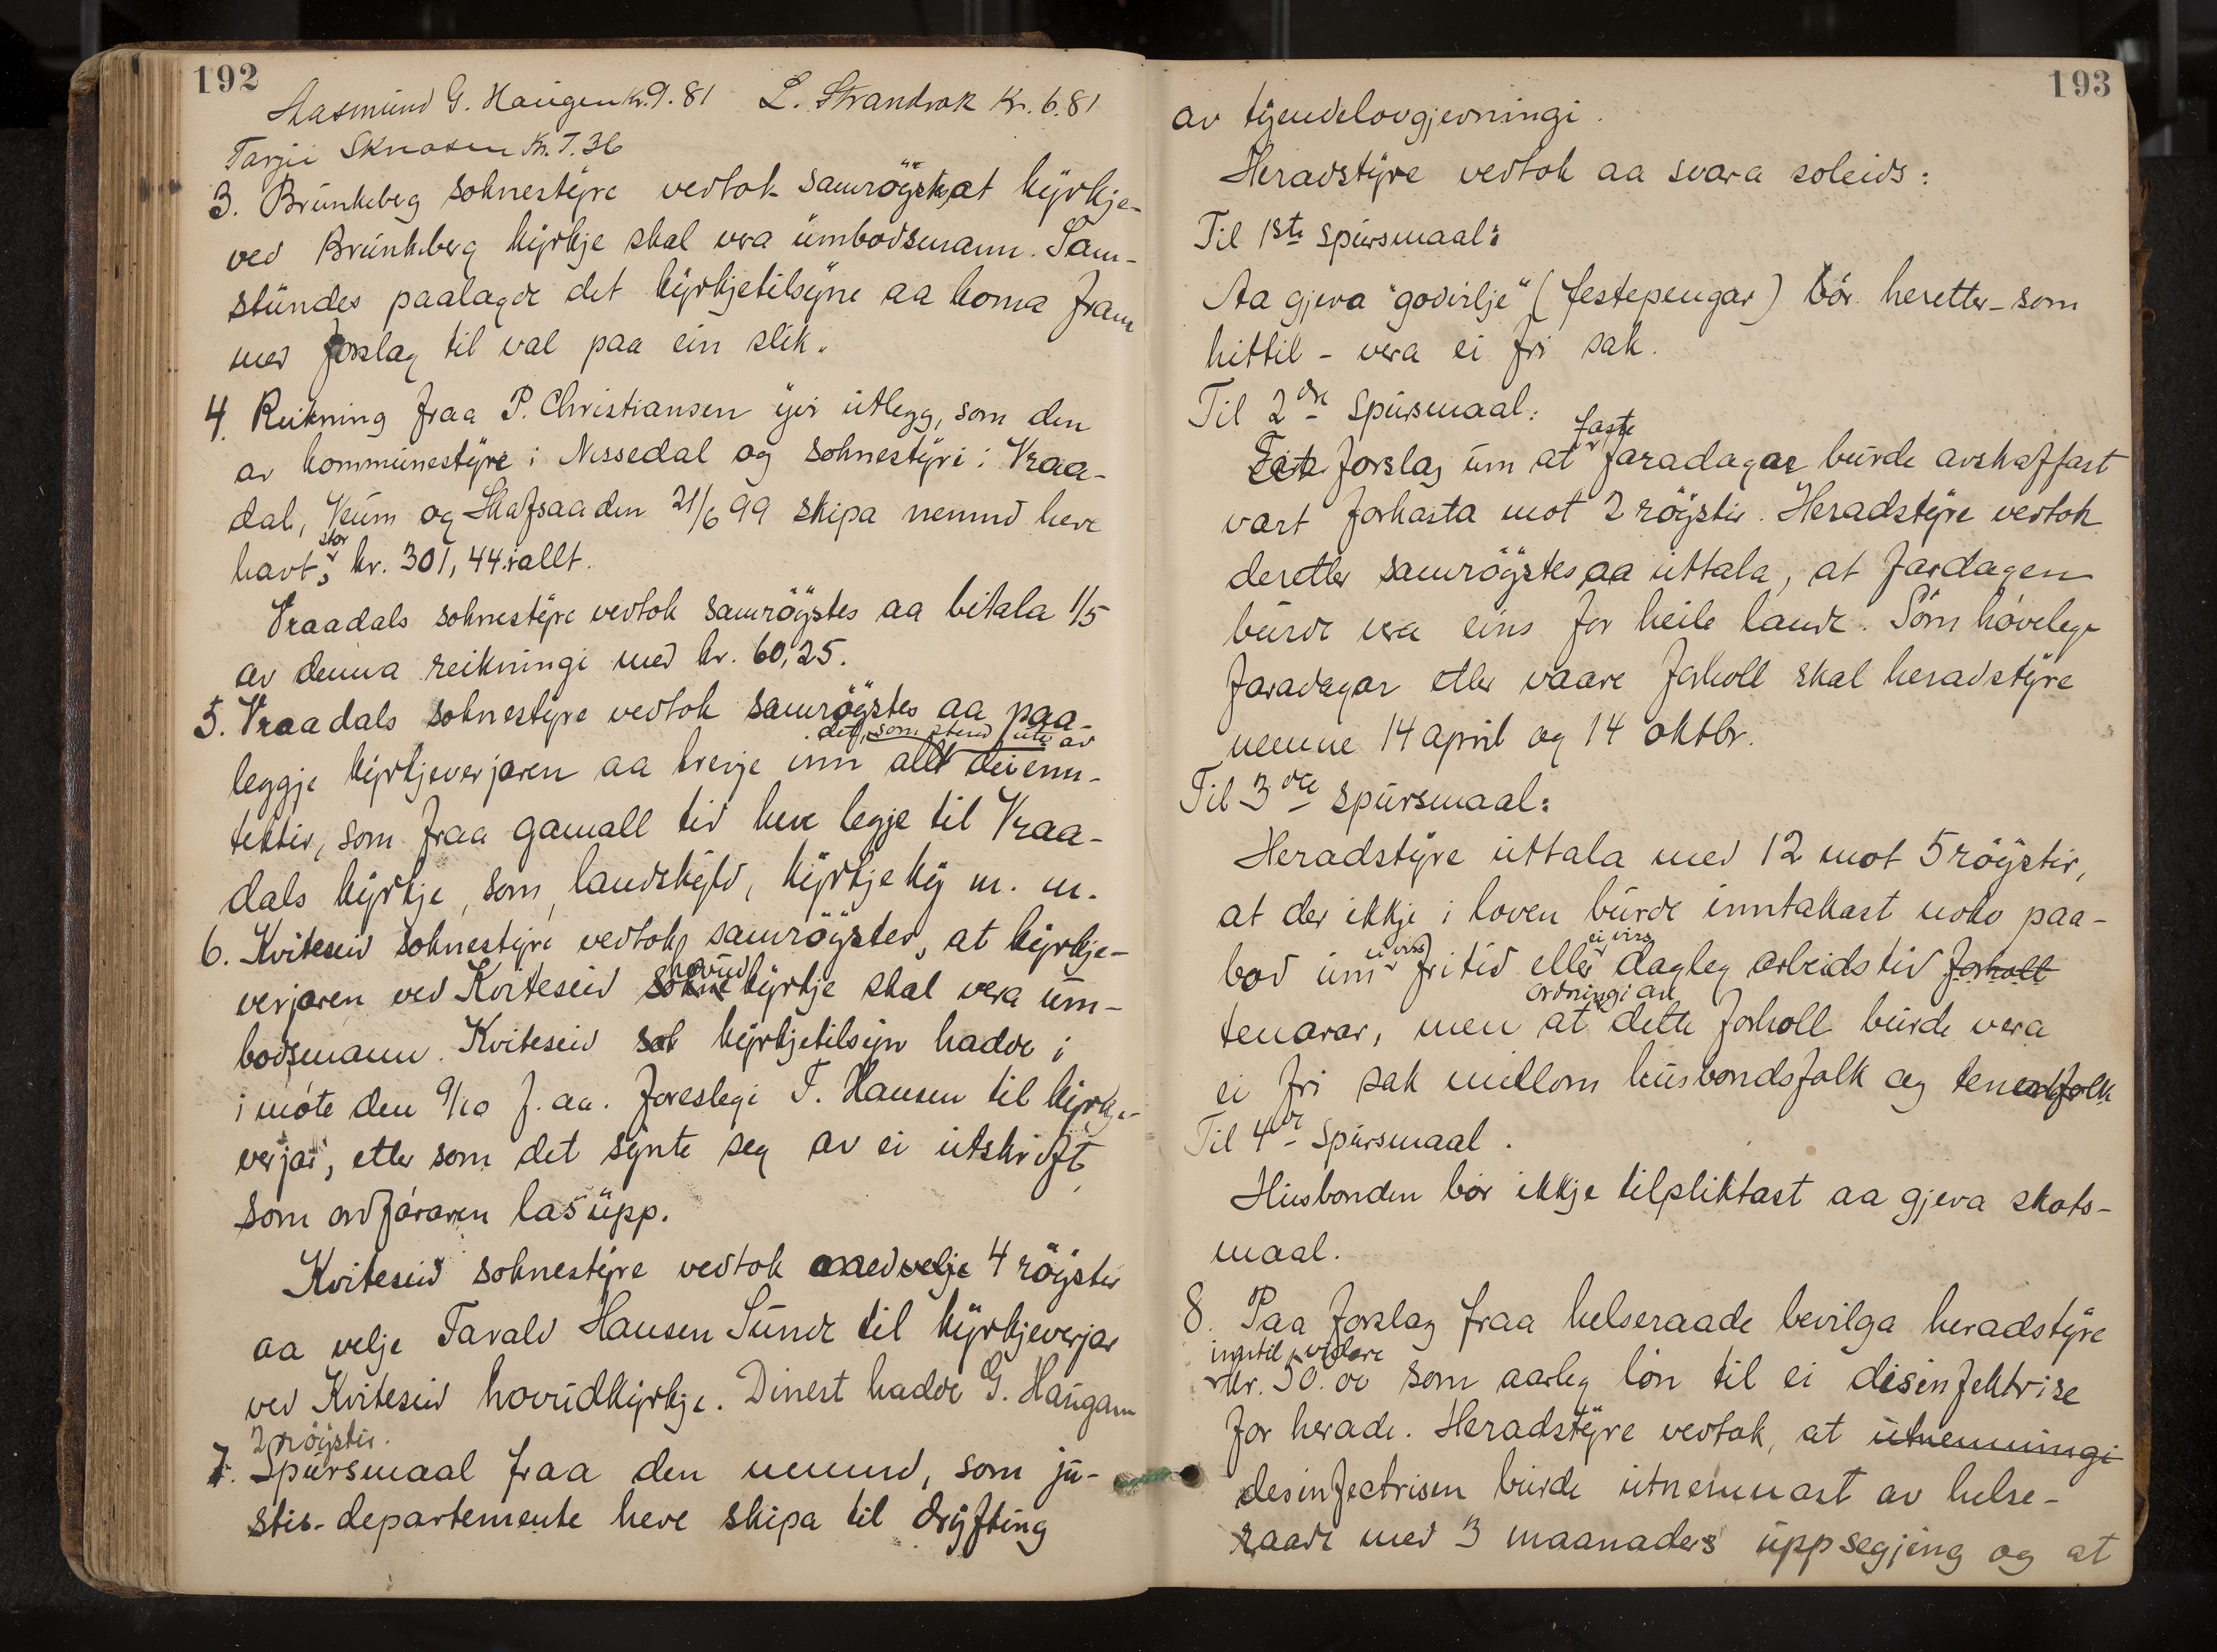 192
Aasmund G. Haugen Kr. 9.81 L. Strandvok Kr. 6.81
Targei Skrosen Kr. 7.36
3. Brunkeberg soknestyre vedtok samrøystes, at kyrkje-
ved Brunkeberg kyrkje skal vera umbodsmann. Sam-
stundes paalagde det kyrkjetilsyne aa koma fram
med forslag til val paa ein slik.
4. Reikning fraa P. Christiansen yvir utlegg, som den
av kommunestyre i Nissedal og soknestyri i Vraa-
dal, Veum og Skafsaa den 21/6 99 skipa nemnd heve
havt, stor kr. 301,44 i allt.
Vraadals soknestyre vedtok samrøystes aa bitala 1/5
av denna reikningi med kr. 60,25.
5. Vraadals soknestyre vedtok samrøystes aa paa-
det, som stend ute av
leggje kyrkjeverjaren aa krevje inn allt dei enn-
tekter, som fraa gamall tid heve legje til Vraa-
dals kyrkje, som landskyld, kyrkjeky m. m.
6. Kviteseid soknestyre vedtok samrøystes, at kyrkje-
hovud
verjaren ved Kviteseid sokne kyrkje skal vera um-
bodsmann. Kviteseid sok kyrkjetilsyn hadde i
i møte den 9/10 f. aa. foreslegi T. Hansen til kyrkje-
verjar, etter som det synte seg av ei utskrift,
som ordføraren las upp.
Kviteseid soknestyre vedtok med velje 4 røyster
aa velje Tarald Hansen Sunde til kyrkjeverjar
ved Kviteseid hovudkyrkje. Dinest hadde G. Haugann
2 røyster.
7. Spursmaal fraa den nemnd, som ju-
stis-departemente heve skipa til drøfting
193
av tyendelovgjevningi.
Heradstyre vedtok aa svara soleids:
Til 1ste spursmaal:
Aa gjeva "godvilje" (festepengar) bør heretter - som
hittil - vera ei fri sak.
Til 2dre spursmaal:
faste
Eit forslag um at faradagar burde avskaffast
vart forkasta mot 2 røyster. Heradstyre vedtok
deretter samrøystes aa uttala, at fardagen
burde vera eins for heile lande. Som høvelege
faradagar etter vaare forholl skal heradstyre
nemne 14 april og 14 oktbr.
Til 3die spursmaal:
Heradstyre uttala med 12 mot 5 røyster,
at der ikkje i loven burde inntakast noko paa-
ei viss ei viss
bod um fritid eller dagleg arbeidstid forholl
ordningi av
tenarar, men at dette forholl burde vera
ei fri sak millom husbondsfolk og tenarfolk
Til 4de spursmaal.
Husbonden bør ikkje tilpliktast aa gjeva skots-
maal.
8. Paa forslag fraa helseraade bevilga heradstyre
inntil vidare
kr. 50.00 som aarleg løn til ei disinfektrise
for herade. Heradstyre vedtok, at utnemningi
desinfectrisen burde utnemnast av helse-
raade med 3 maanaders uppsegjing og at